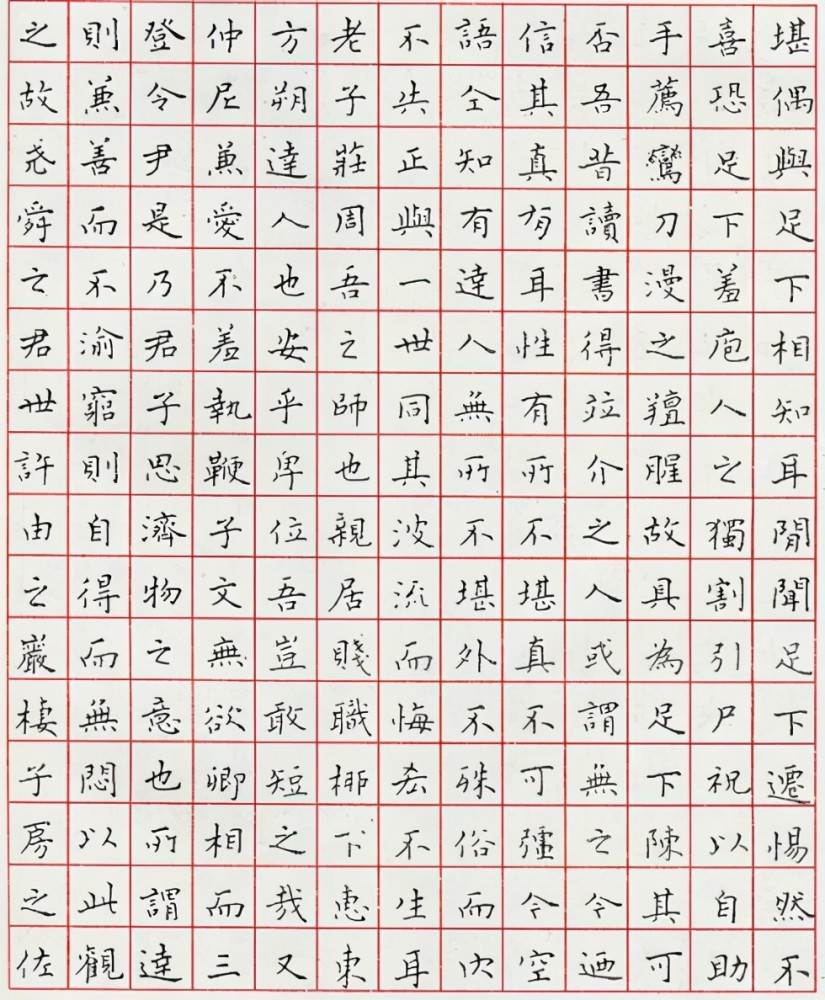 堪偶與足下相知耳閒聞足下遷惕然不
喜恐足下羞庖人之獨割引尸祝以自助
手薦鸞刀漫之羶腥故具為足下陳其可
否吾昔讀書得竝介之人或謂無之今迺
信其真有耳性有所不堪真不可彊今空
語仝知有達人無所不堪外不殊俗而內
不失正與一世同其波流而悔吝不生耳
老子莊周吾之師也親居賤職柳下惠東
方朔達人也安乎卑位吾豈敢短之哉又
仲尼兼愛不羞執鞭子文無欲卿相而三
登令尹是乃君子思濟物之意也所謂達
則兼善而不渝窮則自得而無悶以此觀
之故堯舜之君世許由之巖棲子房之佐